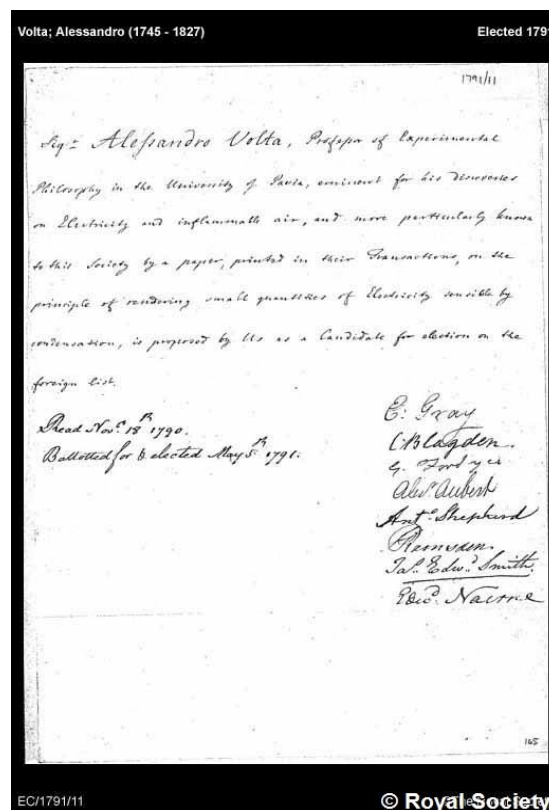 Volta; Alessandro (1745 - 1827)
Elected 1791
1791/11
Sigr. Alessandro Volta, Professor of Experimental
Philosophy in the University of Pavia, eminent for his discoveries
on Electricity and inflammable air, and more particularly known
to this Society by a paper, printed in their Transactions, on the
principle of rendering small quantities of Electricity sensible by
condensation, is proposed by Us as a Candidate for election on the
foreign list.
Read Novr. 18th 1790.
Ballotted for & elected May 5th 1791.
E: Gray
C Blagden.
G. Fordyce
Alexr. Aubert
Ant. Shepherd
Ramsden.
Jas. Edwd. Smith.
Edwd. Nairne
165
EC/1791/11
© Royal Society